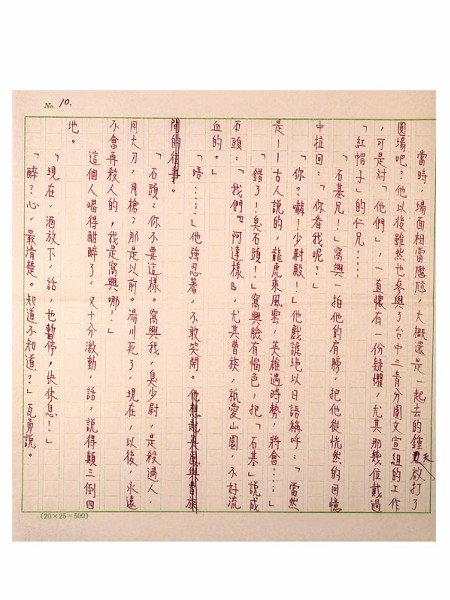 No. 10.
當時，場面相當尷尬，大概還是一起去的鍾天啟打了
圓場吧？他以後雖然也參與了台中三青分團文宣組的工作
，可是對「他們」，一直懷有一份疑懼，尤其那幾位戴過
「紅帽子」的仁兄……
「石基兄！」窩興一拍他的右膀，把他從恍然的回憶
中拉回：「你看我呢？」
「你？嚇！少尉殿！」他戲謔地以日語稱呼：「當然
是——古人說的，龍虎乘風雲，英雄遇時勢，將會……」
「錯了！臭石頭！」窩興臉有慍色，把「石基」說成
石頭：「我們『阿達樣』B，尤其曹族，祇愛山園，不好流
血的。」
「唔……」他強忍著，不敢笑開。他想起吳鳳與曹族
間的往事。
「石頭：你不要這樣。窩興我，臭少尉，是殺過人，
用大刀，用槍；那是以前。湯川死了，現在，以後，永遠
不會再殺人的，我是窩興哪！」
這個人喝得酣醉了，又十分激動，話，說得顛三倒四
地。
「現在，酒放下，話，也暫停，快休息！」
「醉？心，最清楚。知道不知道？」瓦勇說。
(20×25=500)